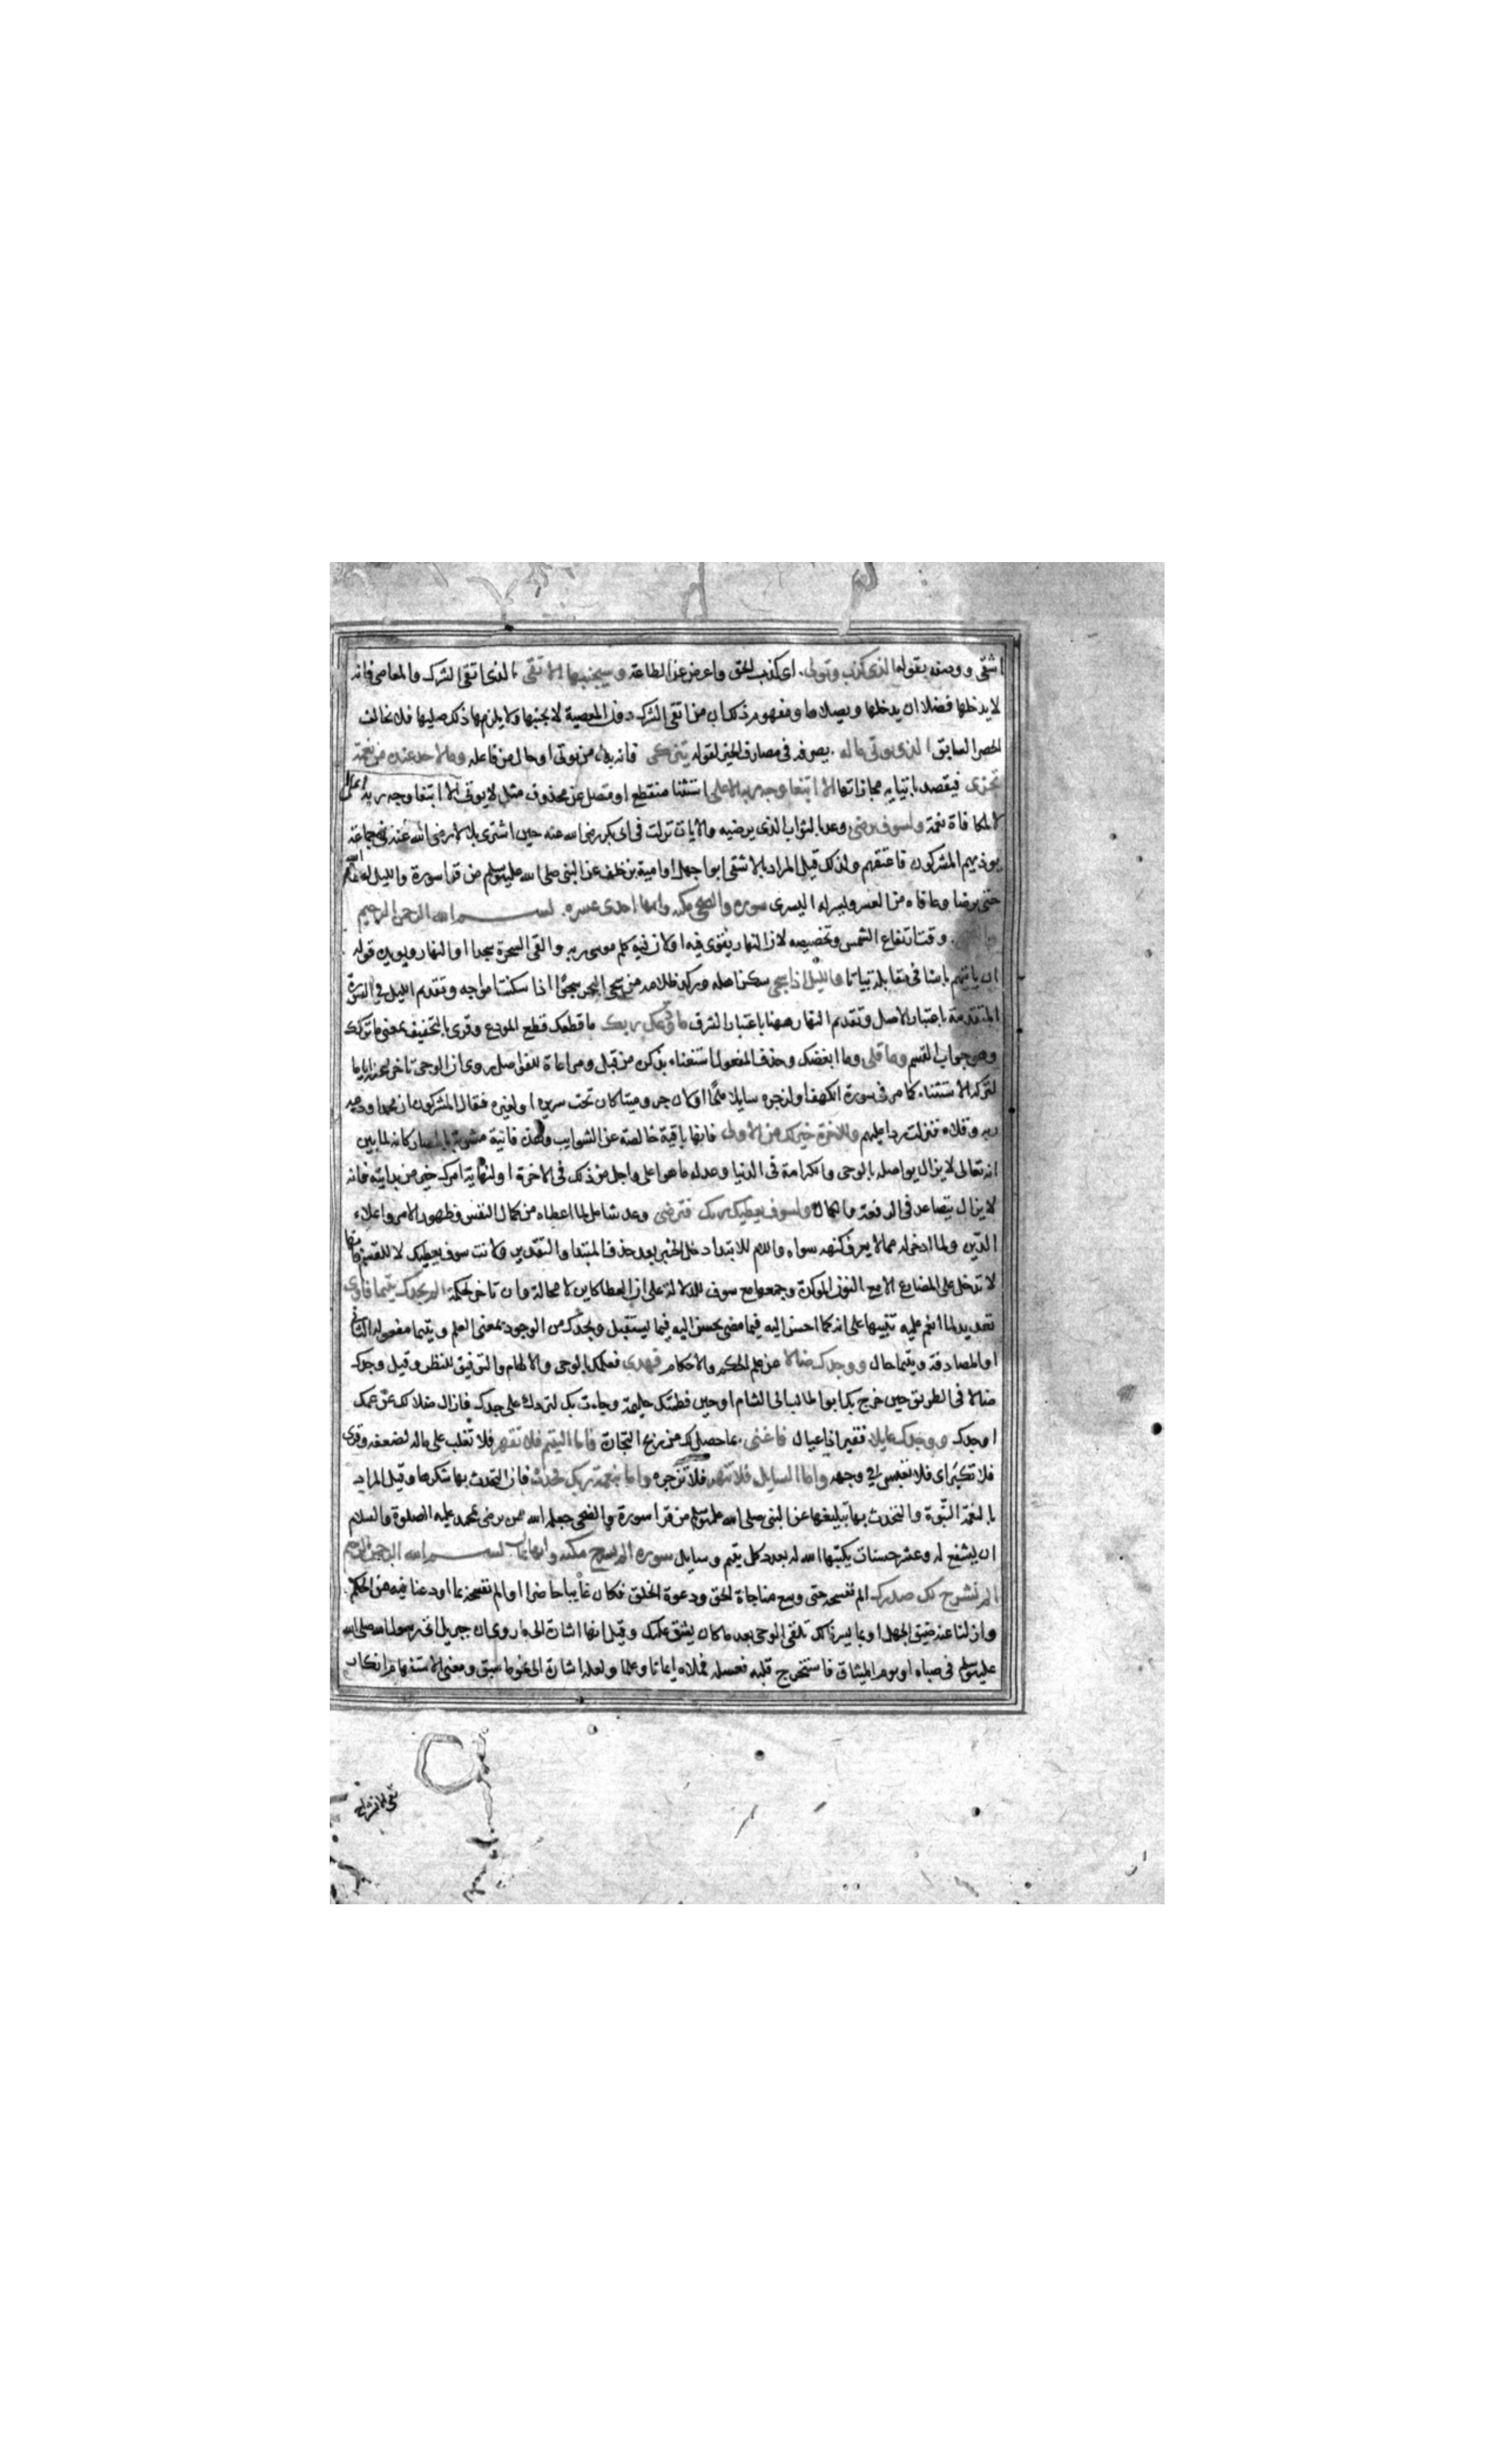 اشقى ووصفه بقوله الذى كذب وتولى اى كذب الحق واعرض عن الطاعة وسيجنبها الاتقى الذى اتقى الشرك والمعاصى فانه
لا يدخلها فضلا ان يدخلها ويصلاها ومفهوم ذلك ان من اتقى الشرك دون المعصية لا يجنبها ولا يلزم ذلك صليها فلا يخالف
الحصر السابق الذى يوتى ماله يصرفه فى مصارف الخير لقوله يتزكى فانه بدل من يوتى او حال من فاعله وما لاحد عنده من نعمة
تجزى فيقصد باتيايه مجازاتها الا ابتغا وجه ربه الاعلى استثنا منقطع او متصل عن محذوف مثل لا يوتى الا ابتغا وجه ربه الاعلى
لا لمكافاة نعمة ولسوف يرضى وعد بالثواب الذى يرضيه والايات نزلت فى ابى بكر رضى الله عنه حين اشترى بلالا رضى الله عنه فى جماعة
يوذيهم المشركون فاعتقهم ولذلك قيل المراد بالاشقى ابو جهل او امية بن خلف عن النبى صلى الله عليه وسلم من قرا سورة والليل اعطاه الله
حتى يرضا وعافاه من العسر ويسر له اليسرى سورة والضحى مكية وايها احدى عشره بسم الله الرحمن الرحيم
والضحى وقت ارتفاع الشمس وتخصيصه لان النهار يقوى فيه او لان فيه كلم موسى ربه والقى السحرة سجدا او النهار ويويده قوله
ان ياتيهم باسنا فى مقابلة بياتا والليل اذا سجى سكن اهله وركد ظلامه من سجى البحر سجوا اذا سكنت امواجه وتقدم الليل فى السورة
المتقدمة باعتبار الاصل وتقديم النهار ههنا باعتبار الشرف ما ودعك ربك ما قطعك قطع المودع وقرى بالتخفيف بمعنى ما تركك
وهو جواب القسم وما قلى وما ابغضك وحذف المفعول استغناء بذكره من قبل ومراعاة للفواصل روى ان الوحى تاخر عنه اياما
لتركه الاستثناء كما مر فى سورة الكهف او لزجره سايلا ملحا او لان جروا ميتا كان تحت سريره او لغيره فقال المشركون ان محمدا ودعه
ربه وقلاه فنزلت ردا عليهم وللاخرة خير لك من الاولى فانها باقية خالصة عن الشوايب وهذه فانية مشوبة بالمضار كانه لما بين
انه تعالى لا يزال يواصله بالوحى والكرامة فى الدنيا وعد له ما هو اعلى واجل من ذلك فى الاخرة او لنهاية امرك خير من بدايته فانه
لا يزال يتصاعد فى الرفعة والكمال ولسوف يعطيك ربك فترضى وعد شامل لما اعطاه من كمال النفس وظهور الامر واعلاء
الدين ولما ادخر له مما لا يعرف كنهه سواه واللام للابتدا دخل الخبر بعد حذف المبتدا والتقدير ولانت سوف يعطيك لا للقسم فانها
لا تدخل على المضارع الا مع النون الموكدة وجمعها مع سوف للدلالة على ان العطا كاين لا محالة وان تاخر لحكمة الم يجدك يتيما فاوى
تعديد لما انعم عليه تنبيها على انه كما احسن اليه فيما مضى يحسن اليه فيما يستقبل ويجدك من الوجود بمعنى العلم ويتيما مفعوله الثانى
او المصادفة ويتيما حال ووجدك ضالا عن علم الحكم والاحكام فهدى فعلمك بالوحى والالهام والتوفيق للنظر وقيل وجدك
ضالا فى الطريق حين خرج بك ابو طالب الى الشام او حين فطمتك حليمة وجاءت بك لتردك على جدك فازال ضلالك عن عمك
او جدك ووجدك عايلا فقيرا ذا عيال فاغنى بما حصل لك من ربح التجارة فاما اليتيم فلا تقهر فلا تغلب على ماله لضعفه وقرى
فلا تكهر اى فلا تعبس فى وجهه واما السايل فلا تنهر فلا تزجره واما بنعمة ربك فحدث فان التحدث بها شكرها وقيل المراد
بالنعمة النبوة والتحدث بها تبليغها عن النبى صلى الله عليه وسلم من قرا سورة والضحى جعله الله ممن يرضى لمحمد عليه الصلوة والسلام
ان يشفع له وعشر حسنات يكتبها الله له بعدد كل يتيم وسايل سورة الم نشرح مكية وايها ثمان بسم الله الرحمن الرحيم
الم نشرح لك صدرك الم نفسحه حتى وسع مناجاة الحق ودعوة الخلق فكان غايبا حاضرا او الم نفسحه بما اودعنا فيه من الحكم
وازلنا عنه ضيق الجهل او بما يسرنا لك تلقى الوحى بعد ما كان يشق عليك وقيل انها اشارة الى ما روى ان جبريل اتى رسول الله صلى الله
عليه وسلم فى صباه او يوم الميثاق فاستخرج قلبه فغسله فملاه ايمانا وعلما ولعله اشارة الى نحو ما سبق ومعنى الاستفهام انكار